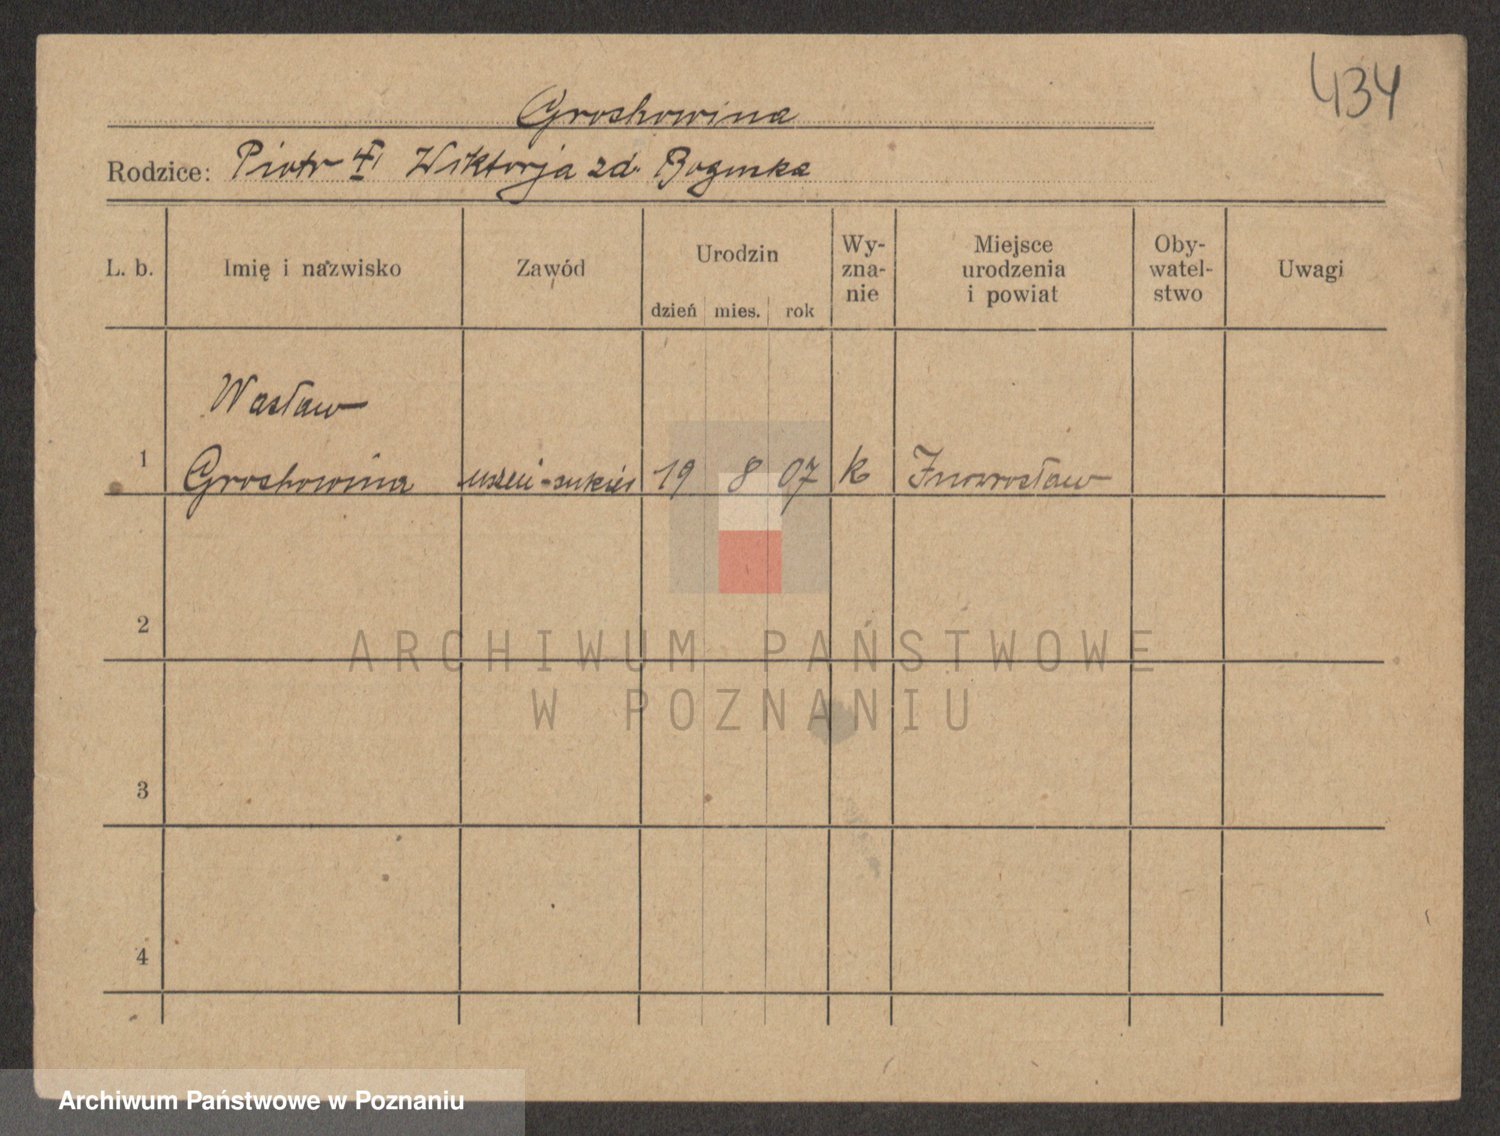 434
Grochowina
Rodzice: Piotr i Wiktorja zd. Boginka
L. b. Imię i nazwisko Zawód Urodzin dzień mies. rok Wy-zna-nie Miejsce urodzenia i powiat Oby-watel-stwo Uwagi
Wacław
1 Grochowina uczeń-cukier 19 8 07 k Inowrocław
2
ARCHIWUM PAŃSTWOWE
W POZNANIU
3
4
Archiwum Państwowe w Poznaniu